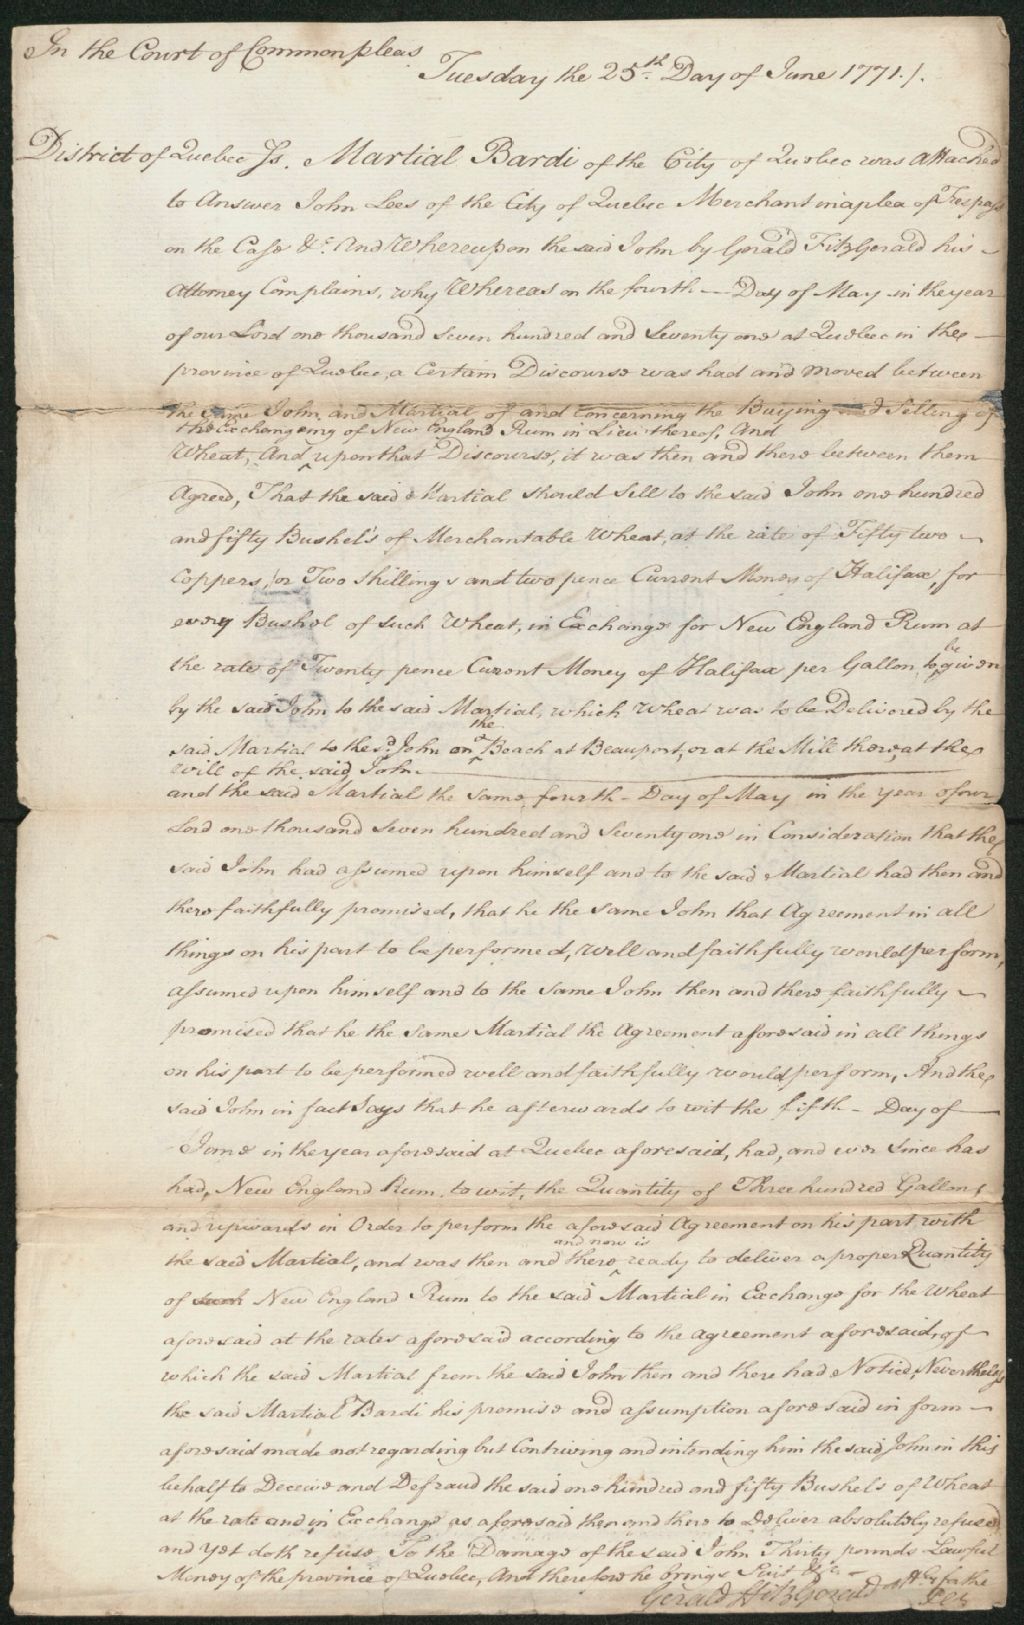 In the Court of Common pleas
Tuesday the 25th Day of June 1771./.
District of Quebec Js. Martial Bardi of the City of Quebec was attached
to Answer John Lees of the City of Quebec Merchant in a plea of Trespass
on the Case &c. And Whereupon the said John by Gerald FitzGerald his
Attorney Complains, why Whereas on the fourth — Day of May in the year
of our Lord one thousand seven hundred and Seventy one at Quebec in the —
province of Quebec, a Certain Discourse was had and moved between
the same John and Martial of and Concerning the Buying and Selling of
the Exchangeing of New England Rum in Lieu thereof, And
Wheat, And ^ upon that Discourse, it was then and there between them
Agreed, That the said Martial should Sell to the said John one hundred
and fifty Bushel's of Merchantable Wheat, at the rate of Fifty two —
Coppers, or Two Shillings and two pence Current Money of Halifax, for
every Bushel of such Wheat, in Exchange for New England Rum at
the rate of Twenty pence Curent Money of Halifax per Gallon to ^be given
by the said John to the said Martial, which Wheat was to be Delivered by the
the
said Martial to the sd. John on ^ Beach at Beauport, or at the Mill there, at the
will of the said John —
and the said Martial the same fourth — Day of May in the year of our
Lord one thousand seven hundred and Seventy one in Consideration that the
said John had assumed upon himself and to the said Martial had then and
there faithfully promised, that he the same John that Agreement in all
things on his part to be performed, well and faithfully would perform,
assumed upon himself and to the Same John then and there faithfully —
promised that he the same Martial the Agreement aforesaid in all things
on his part to be performed well and faithfully would perform, And the
said John in fact Says that he afterwards to wit the fifth — Day of —
June in the year aforesaid at Quebec aforesaid, had, and ever since has
had, New England Rum, to wit, the Quantity of Three hundred Gallons
and upwards in Order to perform the aforesaid Agreement on his part with
and now is
the said Martial, and was then and there ^ ready to deliver a proper Quantity
of such New England Rum to the said Martial in Exchange for the Wheat
aforesaid at the rates aforesaid according to the agreement aforesaid, of —
which the said Martial from the said John then and there had Notice, Nevertheless
the said Martial Bardi his promise and assumption aforesaid in form —
aforesaid made not regarding but Contriving and intending him the said John in this
behalf to Deceive and Defraud the said one hundred and fifty Bushels of Wheat
at the rate and in Exchange as aforesaid then and there to Deliver absolutely refused
and yet doth refuse To the Damage of the said John Thirty pounds Lawful
Money of the province of Quebec, And therefore he brings Suit &c. —
Gerald FitzGerald Atty for the